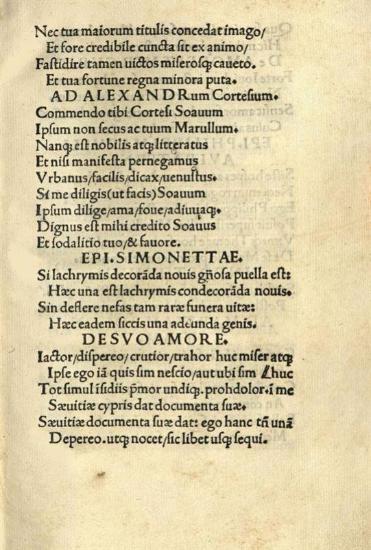 Nec tua maiorum titulis concedat imago/
Et fore credibile cuncta sit ex animo/
Fastidire tamen uictos miserosq; caueto.
Et tua fortune regna minora puta.
AD ALEXANDRum Cortesium.
Commendo tibi Cortesi Soauum
Ipsum non secus ac tuum Marullum.
Nanq; est nobilis atq; litteratus
Et nisi manifesta pernegamus
Vrbanus/facilis/dicax/uenustus.
Si me diligis(ut facis) Soauum
Ipsum dilige/ama/foue/adiuuaq;.
Dignus est mihi credito Soauus
Et sodalitio tuo/& fauore.
EPI. SIMONETTAE.
Si lachrymis decorāda nouis gñosa puella est:
Hæc una est lachrymis condecorāda nouis.
Sin deflere nefas tam raræ funera uitæ:
Hæc eadem siccis una adeunda genis.
DE SVO AMORE.
Iactor/dispereo/crutior/trahor huc miser atq;
Ipse ego iā quis sim nescio/aut ubi sim Łhuc
Tot simul īsidiis p̄mor undiq;. prohdolor. ī me
Sæuitiæ cypris dat documenta suæ.
Sæuitiæ documenta suæ dat: ego hanc tñ unā
Depereo. utq; nocet/sic libet usq; sequi.